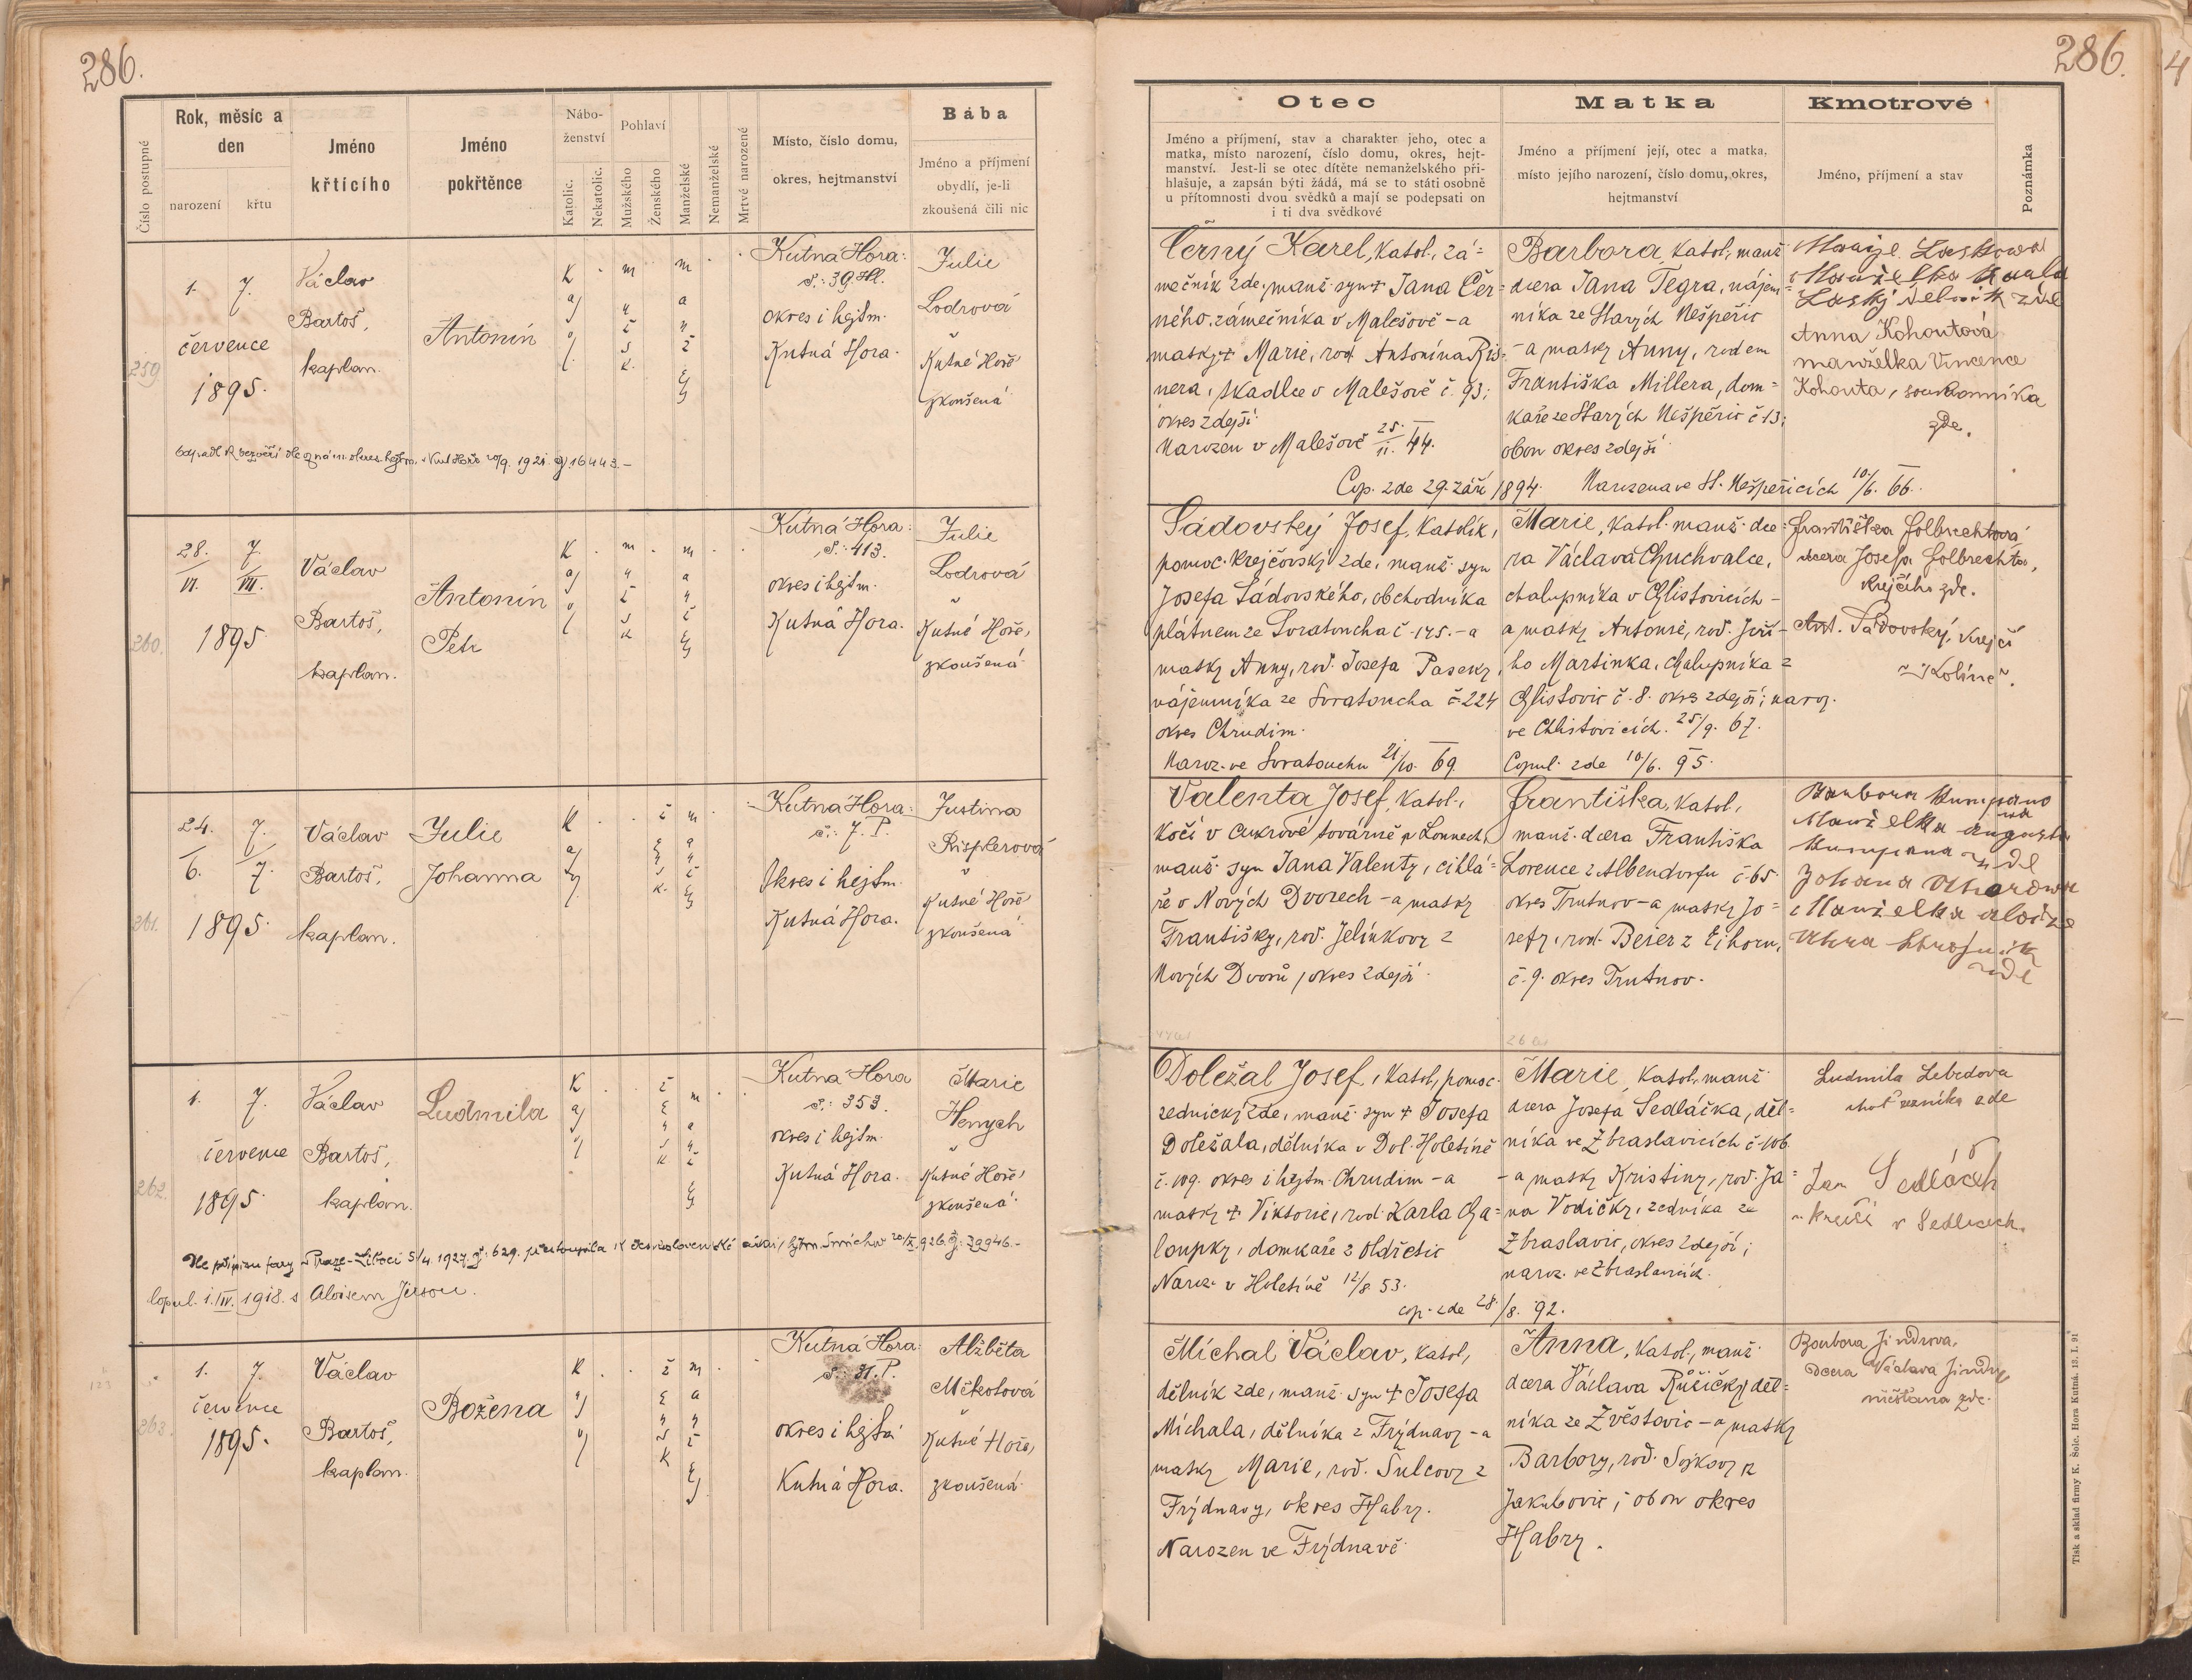 286.
Číslo postupné
Rok, měsíc a
den
narození
křtu
Jméno
křtícího
Jméno
pokřtěnce
Nábo-
ženství
Katolic.
Nekatolic.
Pohlaví
Mužského
Ženského
Manželské
Nemanželské
Mrtvé narozené
Místo, číslo domu,
okres, hejtmanství
Bába
Jméno a příjmení
obydlí, je-li
zkoušená čili nic
259
1. 7.
července
1895.
Václav
Bartoš,
kaplan.
Antonín
Kutná Hora:
č.: 39. Hl.
okres i hejtm.
Kutná Hora.
Julie
Lodrová
v
Kutné Hoře
zkoušená
260.
28. 7.
VI. VII.
1895
Václav
Bartoš,
kaplan.
Antonín
Petr
Kutná Hora:
č.: 413.
okres i hejtm.
Kutná Hora.
Julie
Lodrová
v
Kutné Hoře,
zkoušená
261.
24. 7.
6. 7.
1895.
Václav
Bartoš,
kaplan.
Julie
Johanna
Kutná Hora:
č.: 7. P.
Okres i hejtm.
Kutná Hora.
Justina
Risplerová
v
Kutné Hoře
zkoušená
262.
1. 7.
července
1895.
Václav
Bartoš,
kaplan.
Ludmila
Kutná Hora
č.: 353.
okres i hejtm.
Kutná Hora.
Marie
Henych
v
Kutné Hoře,
zkoušená.
Copul. 1. IV. 1918. s Aloisem
263.
1. 7.
července
1895.
Václav
Bartoš,
kaplan.
Božena
Kutná Hora:
okres i hejtm.
Kutná Hora.
Alžběta
Měkotová
v
Kutné Hoře,
zkoušená.
286.
Otec
Jméno a příjmení, stav a charakter jeho, otec a
matka, místo narození, číslo domu, okres, hejt-
manství. Jest-li se otec dítěte nemanželského při-
hlašuje, a zapsán býti žádá, má se to státi osobně
u přítomnosti dvou svědků a mají se podepsati on
i ti dva svědkové
Matka
Jméno a příjmení její, otec a matka,
místo jejího narození, číslo domu, okres,
hejtmanství
Kmotrové
Jméno, příjmení a stav
Poznámka
Černý Karel, katol., zá=
mečník zde, manž. syn + Jana Čer=
ného, zámečníka v Malešově - a
matky + Marie, rod. Antonína Ris=
nera, tkadlce v Malešově č. 93;
okres zdejší
Narozen v Malešově 25. 11. 44.
Cop. zde 29. září 1894.
Barbora, katol., manž.
dcera Jana Tegra, nájem=
níka ze Starých Nešpěřic
- a matky Anny, rodem
Františka Millera, dom=
kaře ze Starých Nešpěřic č 13;
obou okres zdejší
Narozena ve St. Nešpeřicích 10/6. 66.
Anna Kohoutová
manželka Vincence
Kohouta, soukromníka
zde.
Sádovský Josef, katolík,
pomoc. krejčovský zde, manž. syn
Josefa Sádovského, obchodníka
plátnem ze Svratoucha č. 175. - a
matky Anny, rod. Josefa Paseky,
nájemníka ze Svratoucha č 224
okres Chrudim.
Naroz. ve Svratouchu 21/10. 69
Marie, katol. manž. dce=
ra Václava Chuchvalce,
chalupníka v Chlistovicích -
a matky Antonie, rod. Jiří-
ho Martinka, chalupníka z
Chlistovic č. 8. okres zdejší; naroz.
ve Chlistovicích. 25/9. 67.
Copul. zde 10/6. 95.
Františka Folbrechtová
dcera Josefa Folbrechta,
krejčího zde.
Ant. Sádovský, krejčí
v Kolíně.
Valenta Josef, katol.,
kočí v cukrové továrně
manž. syn Jana Valenty, cihlá=
ře v Nových Dvorech - a matky
Františky, rod. Jelínkovy z
Nových Dvorů, okres zdejší.
Františka, katol,
manž. dcera Františka
Lorence z Albendorfu č. 65.
okres Trutnov - a matky Jo=
sefy, rod. Beier z
č. 9. okres Trutnov.
26 let
Doležal Josef, katol., pomoc.
zednický zde, manž. syn + Josefa
Doležala, dělníka v Dol. Holetíně
č. 109. okres i hejtm. Chrudim - a
matky + Viktorie, rod. Karla Cha=
loupky, domkaře z Oldřetic
Naroz. v Holetíně 12/8. 53.
cop. zde 28./8. 92.
Marie, katol., manž.
dcera Josefa Sedláčka, děl=
níka ve Zbraslavicích č. 106
- a matky Kristiny, rod. Ja=
na Vodičky, zedníka ze
Zbraslavic, okres zdejší;
naroz. ve Zbraslavicích.
Ludmila Lebedova
choť řezníka zde
Jan Sedláček
krejčí v Sedlicích.
Míchal Václav, katol,
dělník zde, manž. syn + Josefa
Míchala, dělníka z Frýdnavy - a
matky Marie, rod. Šulcovy z
Frýdnavy, okres Habry.
Narozen ve Frýdnavě
Anna, katol., manž.
dcera Václava Růžičky, děl=
níka ze Zvěstovic - a matky
Barbory, rod. Sojkovy z
Jakubovic; obou okres
Habry.
Barbora Jindrova,
dcera Václava Jindry
měšťana zde.
Tisk a sklad firmy K. Šolc. Hora Kutná. 13. I. 91